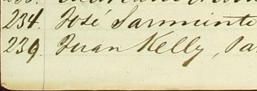 234. José Sarmiento
239. Juan Kelly, Sa